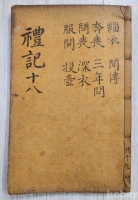 緇衣 間傳
奔喪 三年問
問喪 深衣
服問 投壺
禮記十八